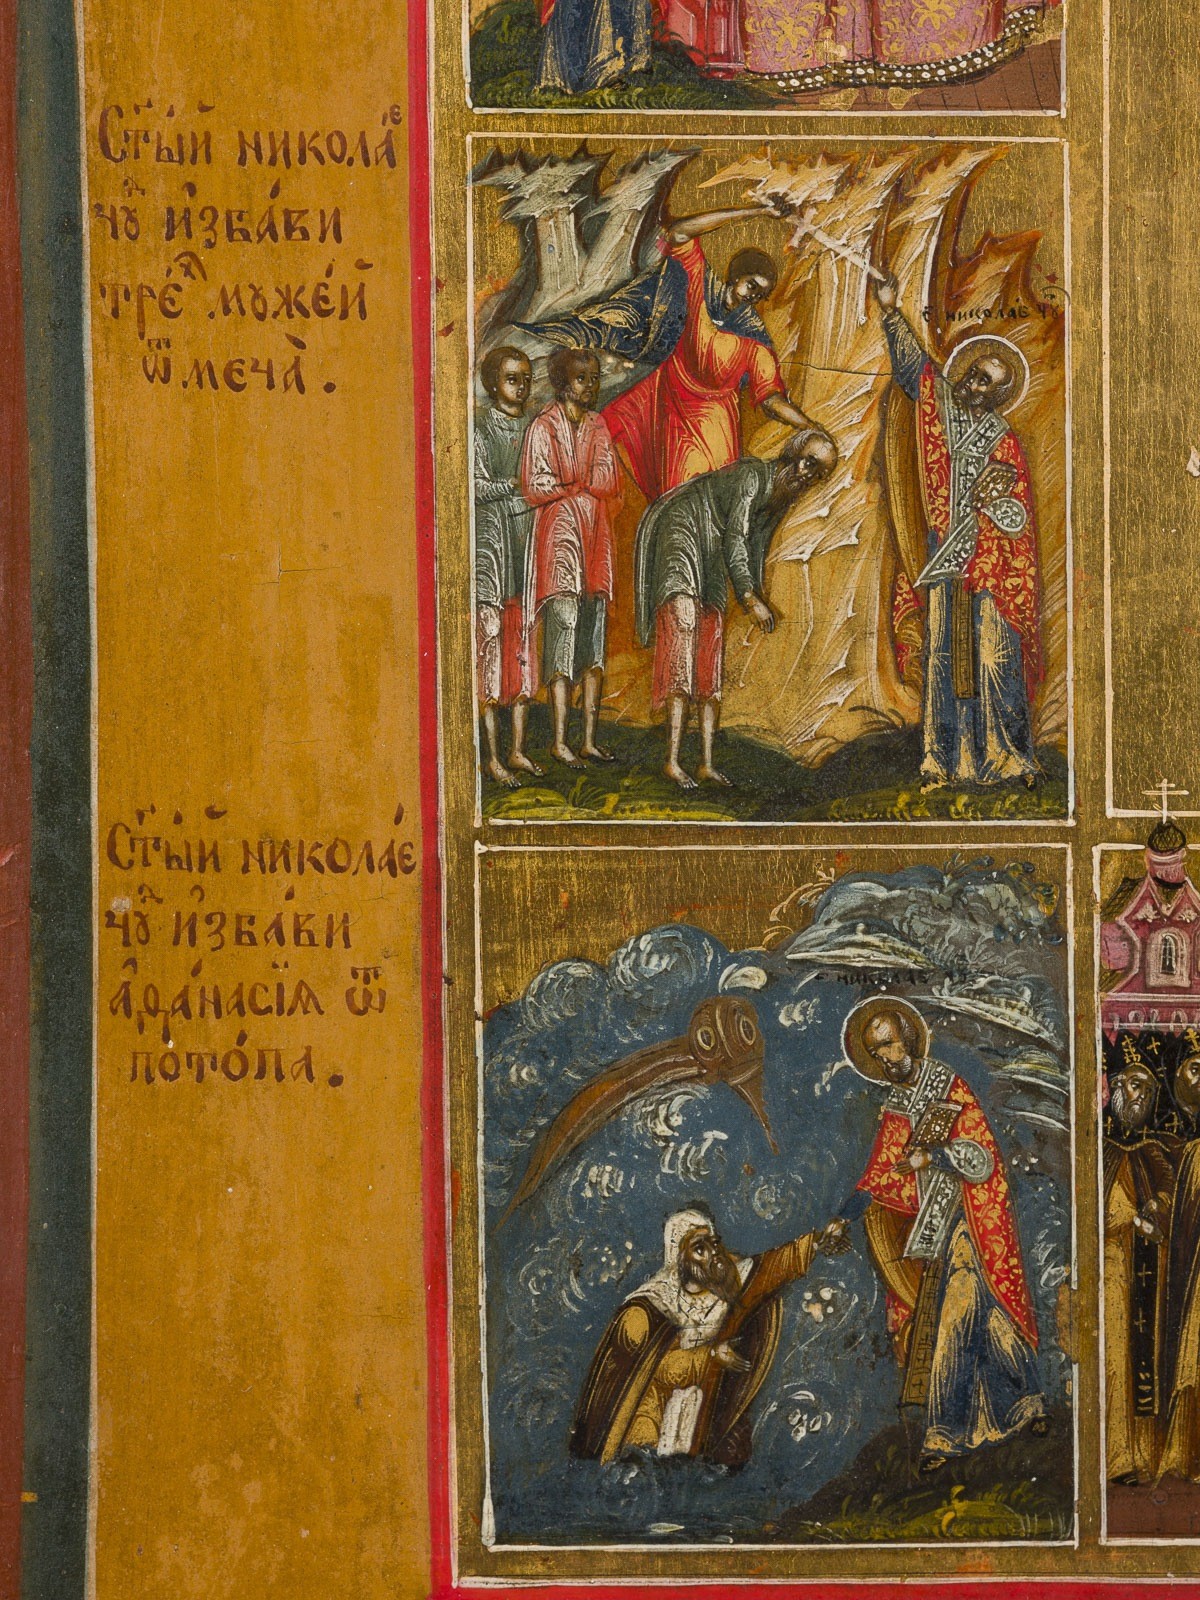 Ст҃ы́й никола́е
чꙋд и҆зба́ви
тре́х мꙋже́й
ѿ меча̀.
с никоlае чꙋ
Ст҃ы́й никола́е
чꙋд и҆зба́ви
а҆ѳана́сїѧ ѿ
пото́па.
никола́е чꙋ